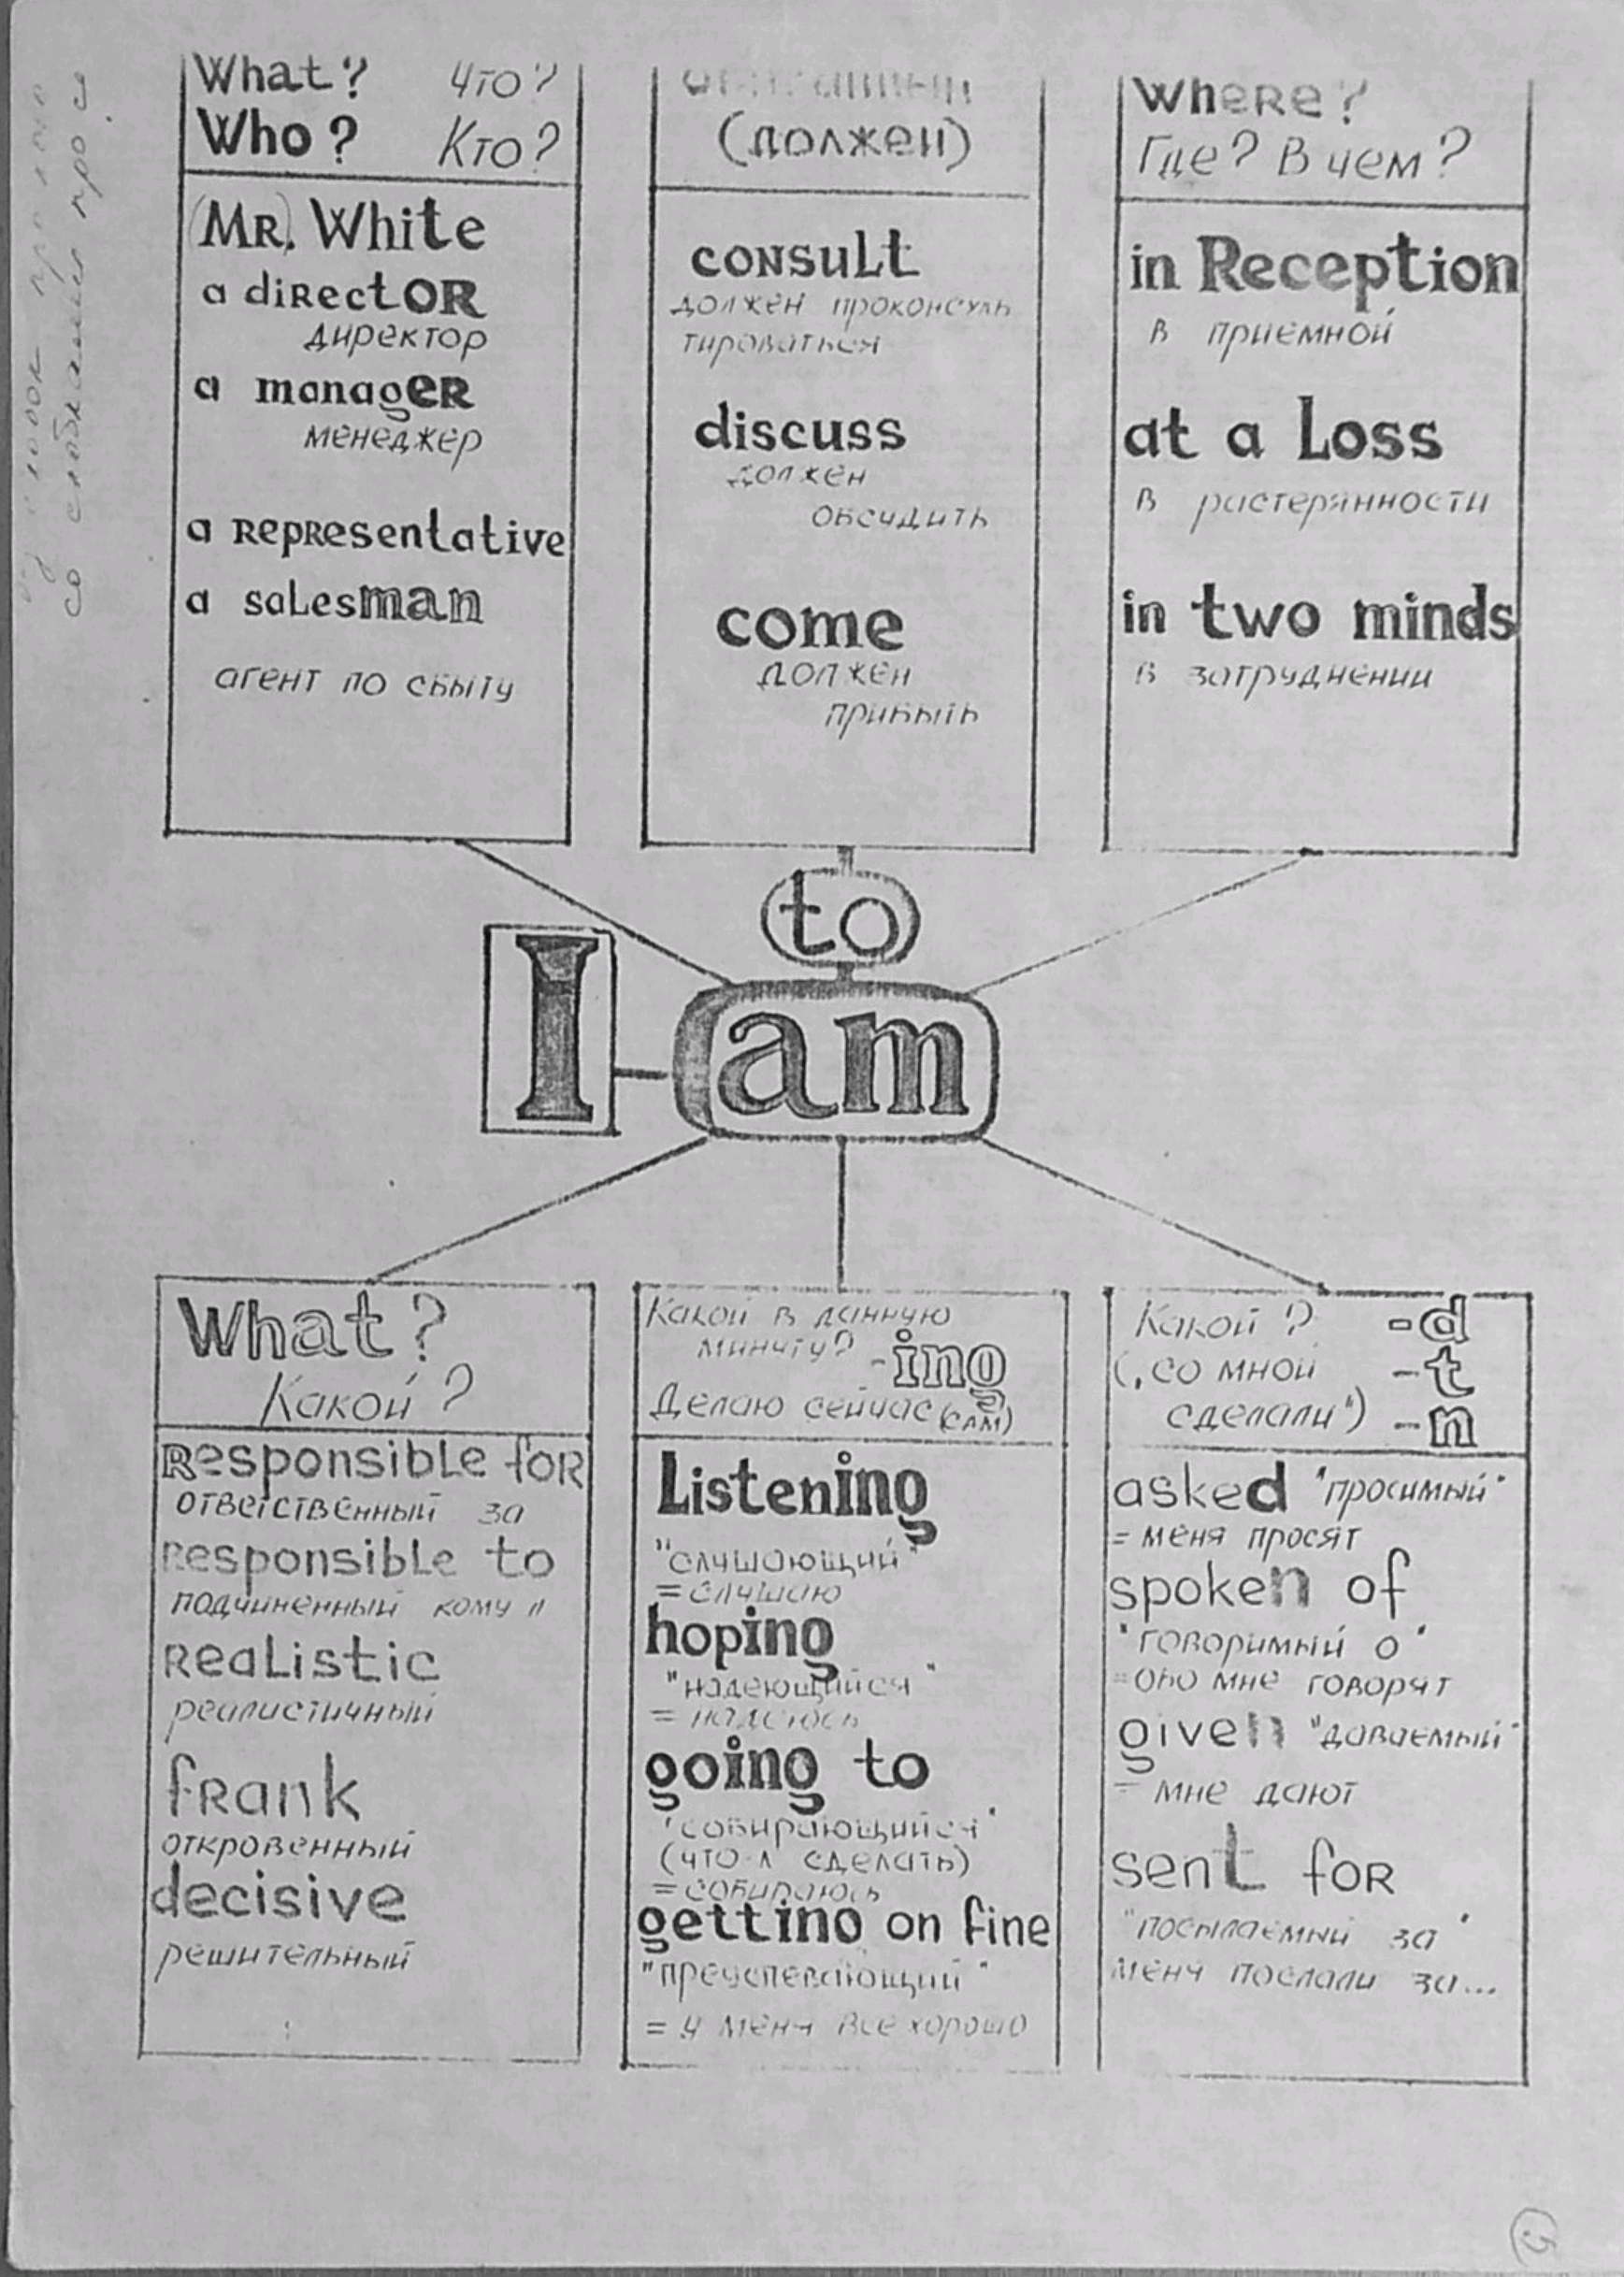 What? Что?
Who? Кто?
(MR). White
a director
директор
a manager
менеджер
a representative
a salesman
агент по сбыту
(должен)
consult
должен проконсуль
тироваться
discuss
должен
обсудить
come
должен
прибыть
Where?
Где? В чем?
in Reception
в приемной
at a Loss
в растерянности
in two minds
в затруднении
to
I am
What?
Какой?
Responsible for
ответственный за
responsible to
подчиненный кому л
Realistic
реалистичный
frank
откровенный
decisive
решительный
Какой в данную
минуту? -ing
Делаю сейчас (сам)
Listening
"слушающий"
= слушаю
hoping
"надеющийся"
= надеюсь
going to
"собирающийся"
(что-л сделать)
= собираюсь
getting on fine
"преуспевающий"
= у меня все хорошо
Какой? -d
(„со мной -t
сделали") -n
asked "просимый"
= меня просят
spoken of
"говоримый о"
= обо мне говорят
given "даваемый"
= мне дают
sent for
"посылаемый за"
меня послали за...